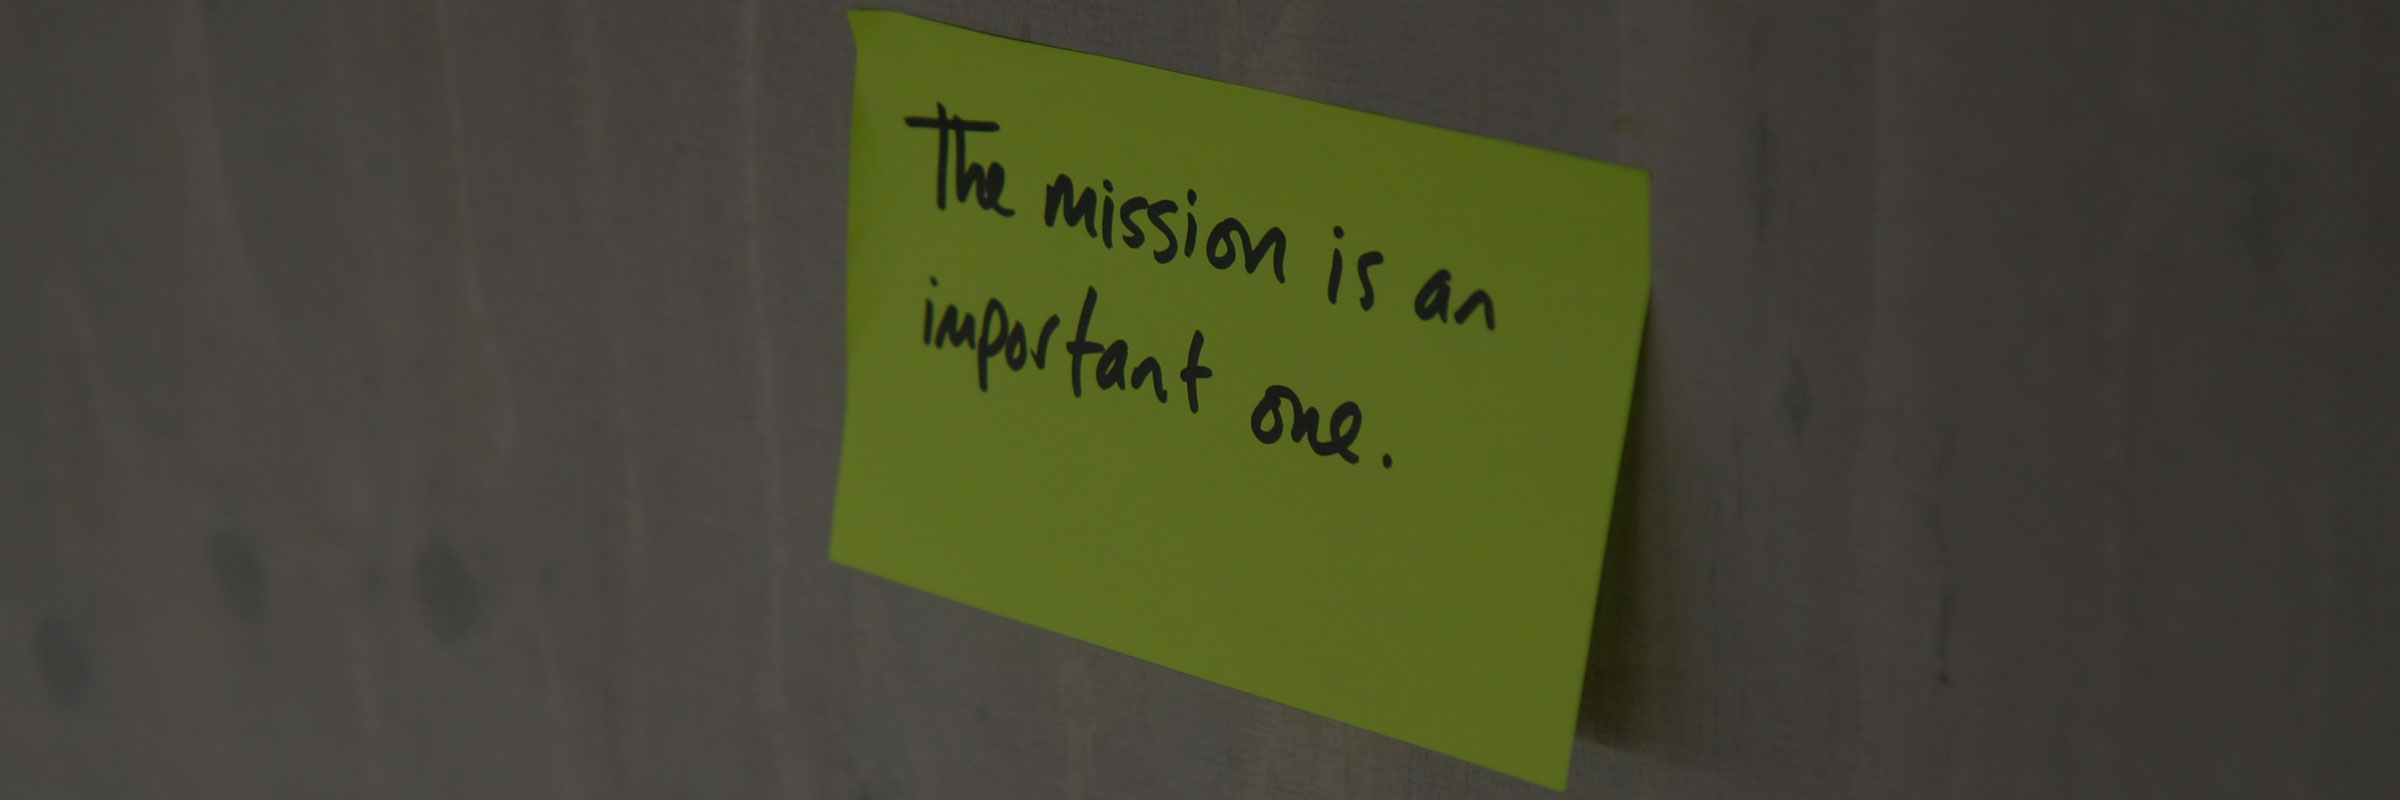 The mission is an
important one.